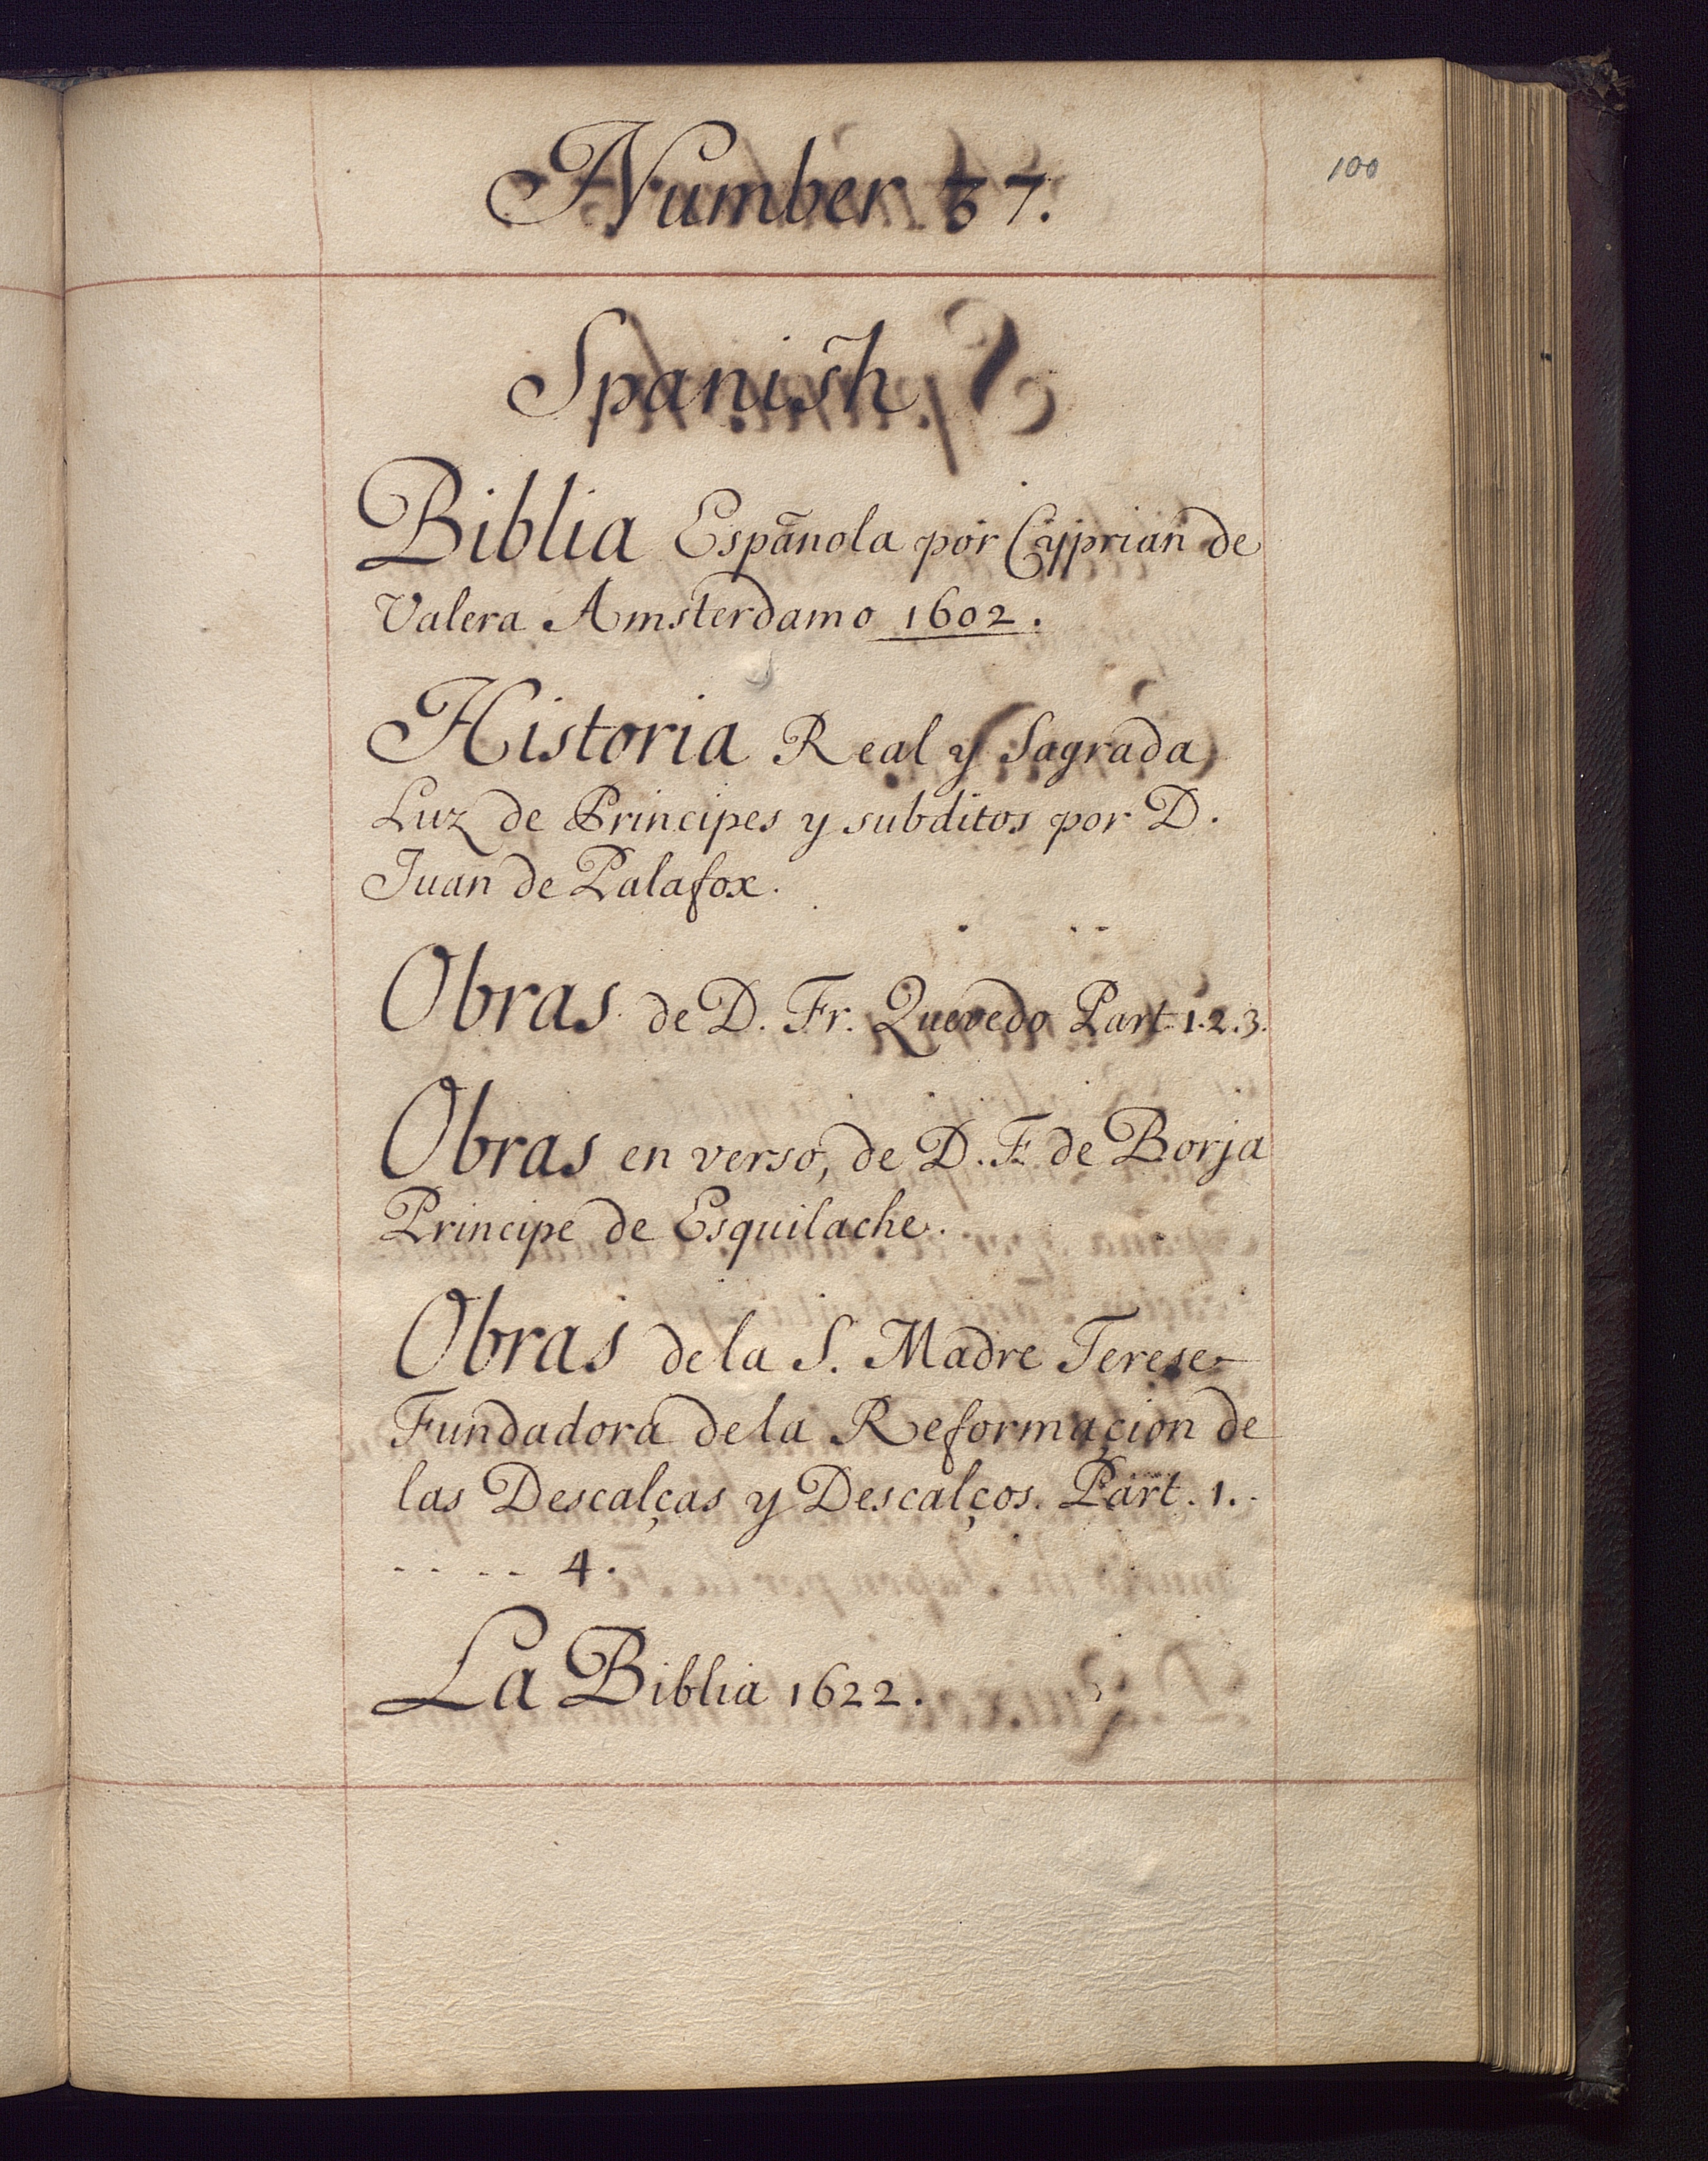 100
Number 37.
Spanish.
Biblia Espãnola por Cyprian de
Valera Amsterdamo 1602.
Historia Real y Sagrada
Luz de Principes y subditos por D.
Juan de Palafox.
Obras de D. Fr. Quevedo Part. 1.2.3.
Obras en verso, de D. F. de Borja
Principe de Esquilache.
Obras de la S. Madre Terese
Fundadora de la Reformaçion de
las Descalças y Descalços. Part. 1. -
- - - - 4.
La Biblia 1622.